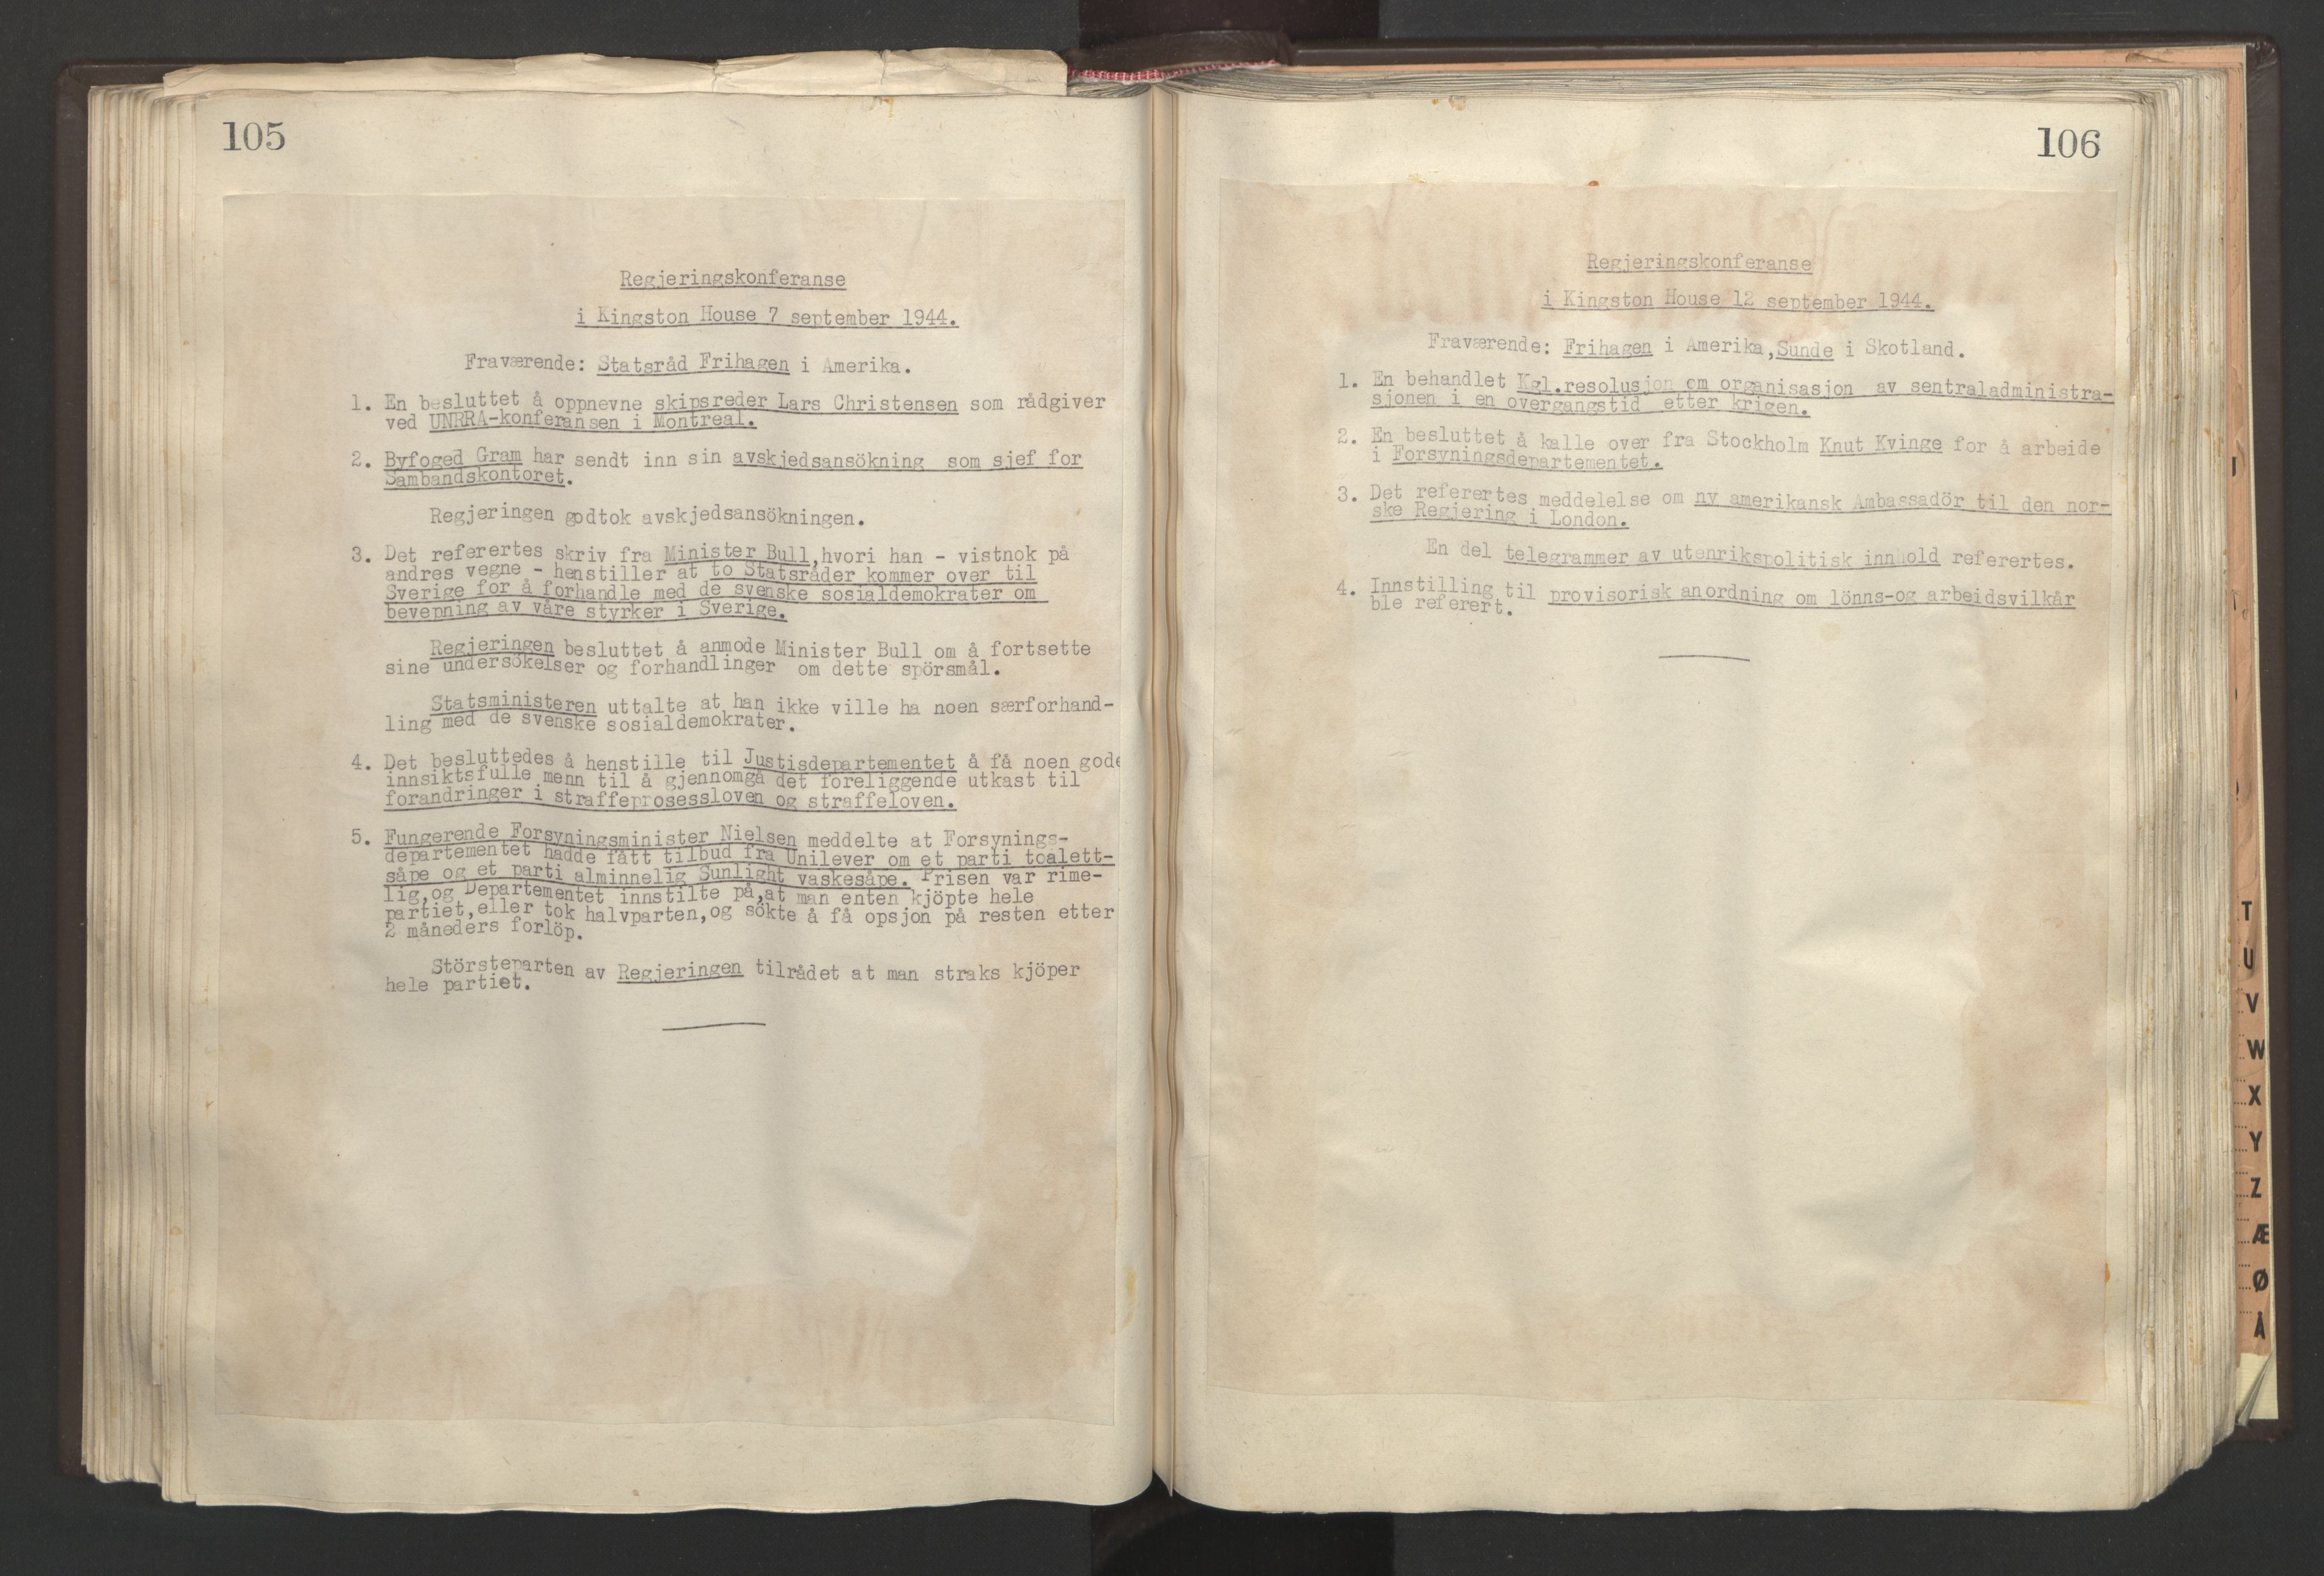 105
Regjeringskonferanse
i Kingston House 7 september 1944.
Fraværende: Statsråd Frihagen i Amerika.
1. En besluttet å oppnevne skipsreder Lars Christensen som rådgiver
ved UNRRA-konferansen i Montreal.
2. Byfoged Gram har sendt inn sin avskjedsansökning som sjef for
Sambandskontoret.
Regjeringen godtok avskjedsansökningen.
3. Det referertes skriv fra Minister Bull, hvori han - vistnok på
andres vegne - henstiller at to Statsråder kommer over til
Sverige for å forhandle med de svenske sosialdemokrater om
bevepning av våre styrker i Sverige.
Regjeringen besluttet å anmode Minister Bull om å fortsette
sine undersökelser og forhandlinger om dette spörsmål.
Statsministeren uttalte at han ikke ville ha noen særforhand-
ling med de svenske sosialdemokrater.
4. Det besluttedes å henstille til Justisdepartementet å få noen gode
innsiktsfulle menn til å gjennomgå det foreliggende utkast til
forandringer i straffeprosessloven og straffeloven.
5. Fungerende Forsyningsminister Nielsen meddelte at Forsynings-
departementet hadde fått tilbud fra Unilever om et parti toalett-
såpe og et parti alminnelig Sunlight vaskesåpe. Prisen var rime-
lig, og Departementet innstilte på, at man enten kjöpte hele
partiet, eller tok halvparten, og sökte å få opsjon på resten etter
2 måneders forlöp.
Störsteparten av Regjeringen tilrådet at man straks kjöper
hele partiet.
106
Regjeringskonferanse
i Kingston House 12 september 1944.
Fraværende: Frihagen i Amerika, Sunde i Skotland.
1. En behandlet Kgl.resolusjon om organisasjon av sentraladministra-
sjonen i en overgangstid etter krigen.
2. En besluttet å kalle over fra Stockholm Knut Kvinge for å arbeide
i Forsyningsdepartementet.
3. Det referertes meddelelse om ny amerikansk Ambassadör til den nor-
ske Regjering i London.
En del telegrammer av utenrikspolitisk innhold referertes.
4. Innstilling til provisorisk anordning om lönns-og arbeidsvilkår
ble referert.
T
U
V
W
X
Y
Z
Æ
Ø
Å